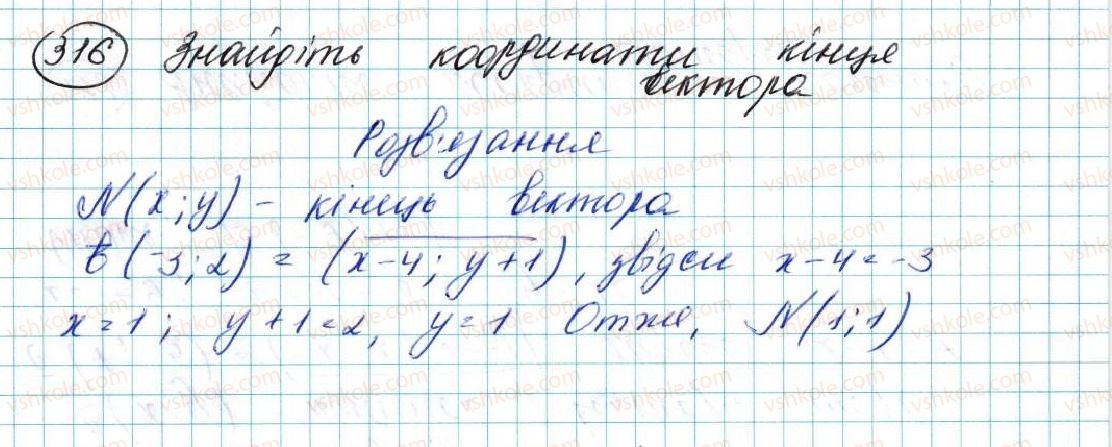 316 Знайдіть координати кінця
вектора
Розв'язання
N(x; y) - кінець вектора
b(-3; 2) = (x-4; y+1), звідси x-4=-3
x=1; y+1=2, y=1 Отже, N(1;1)